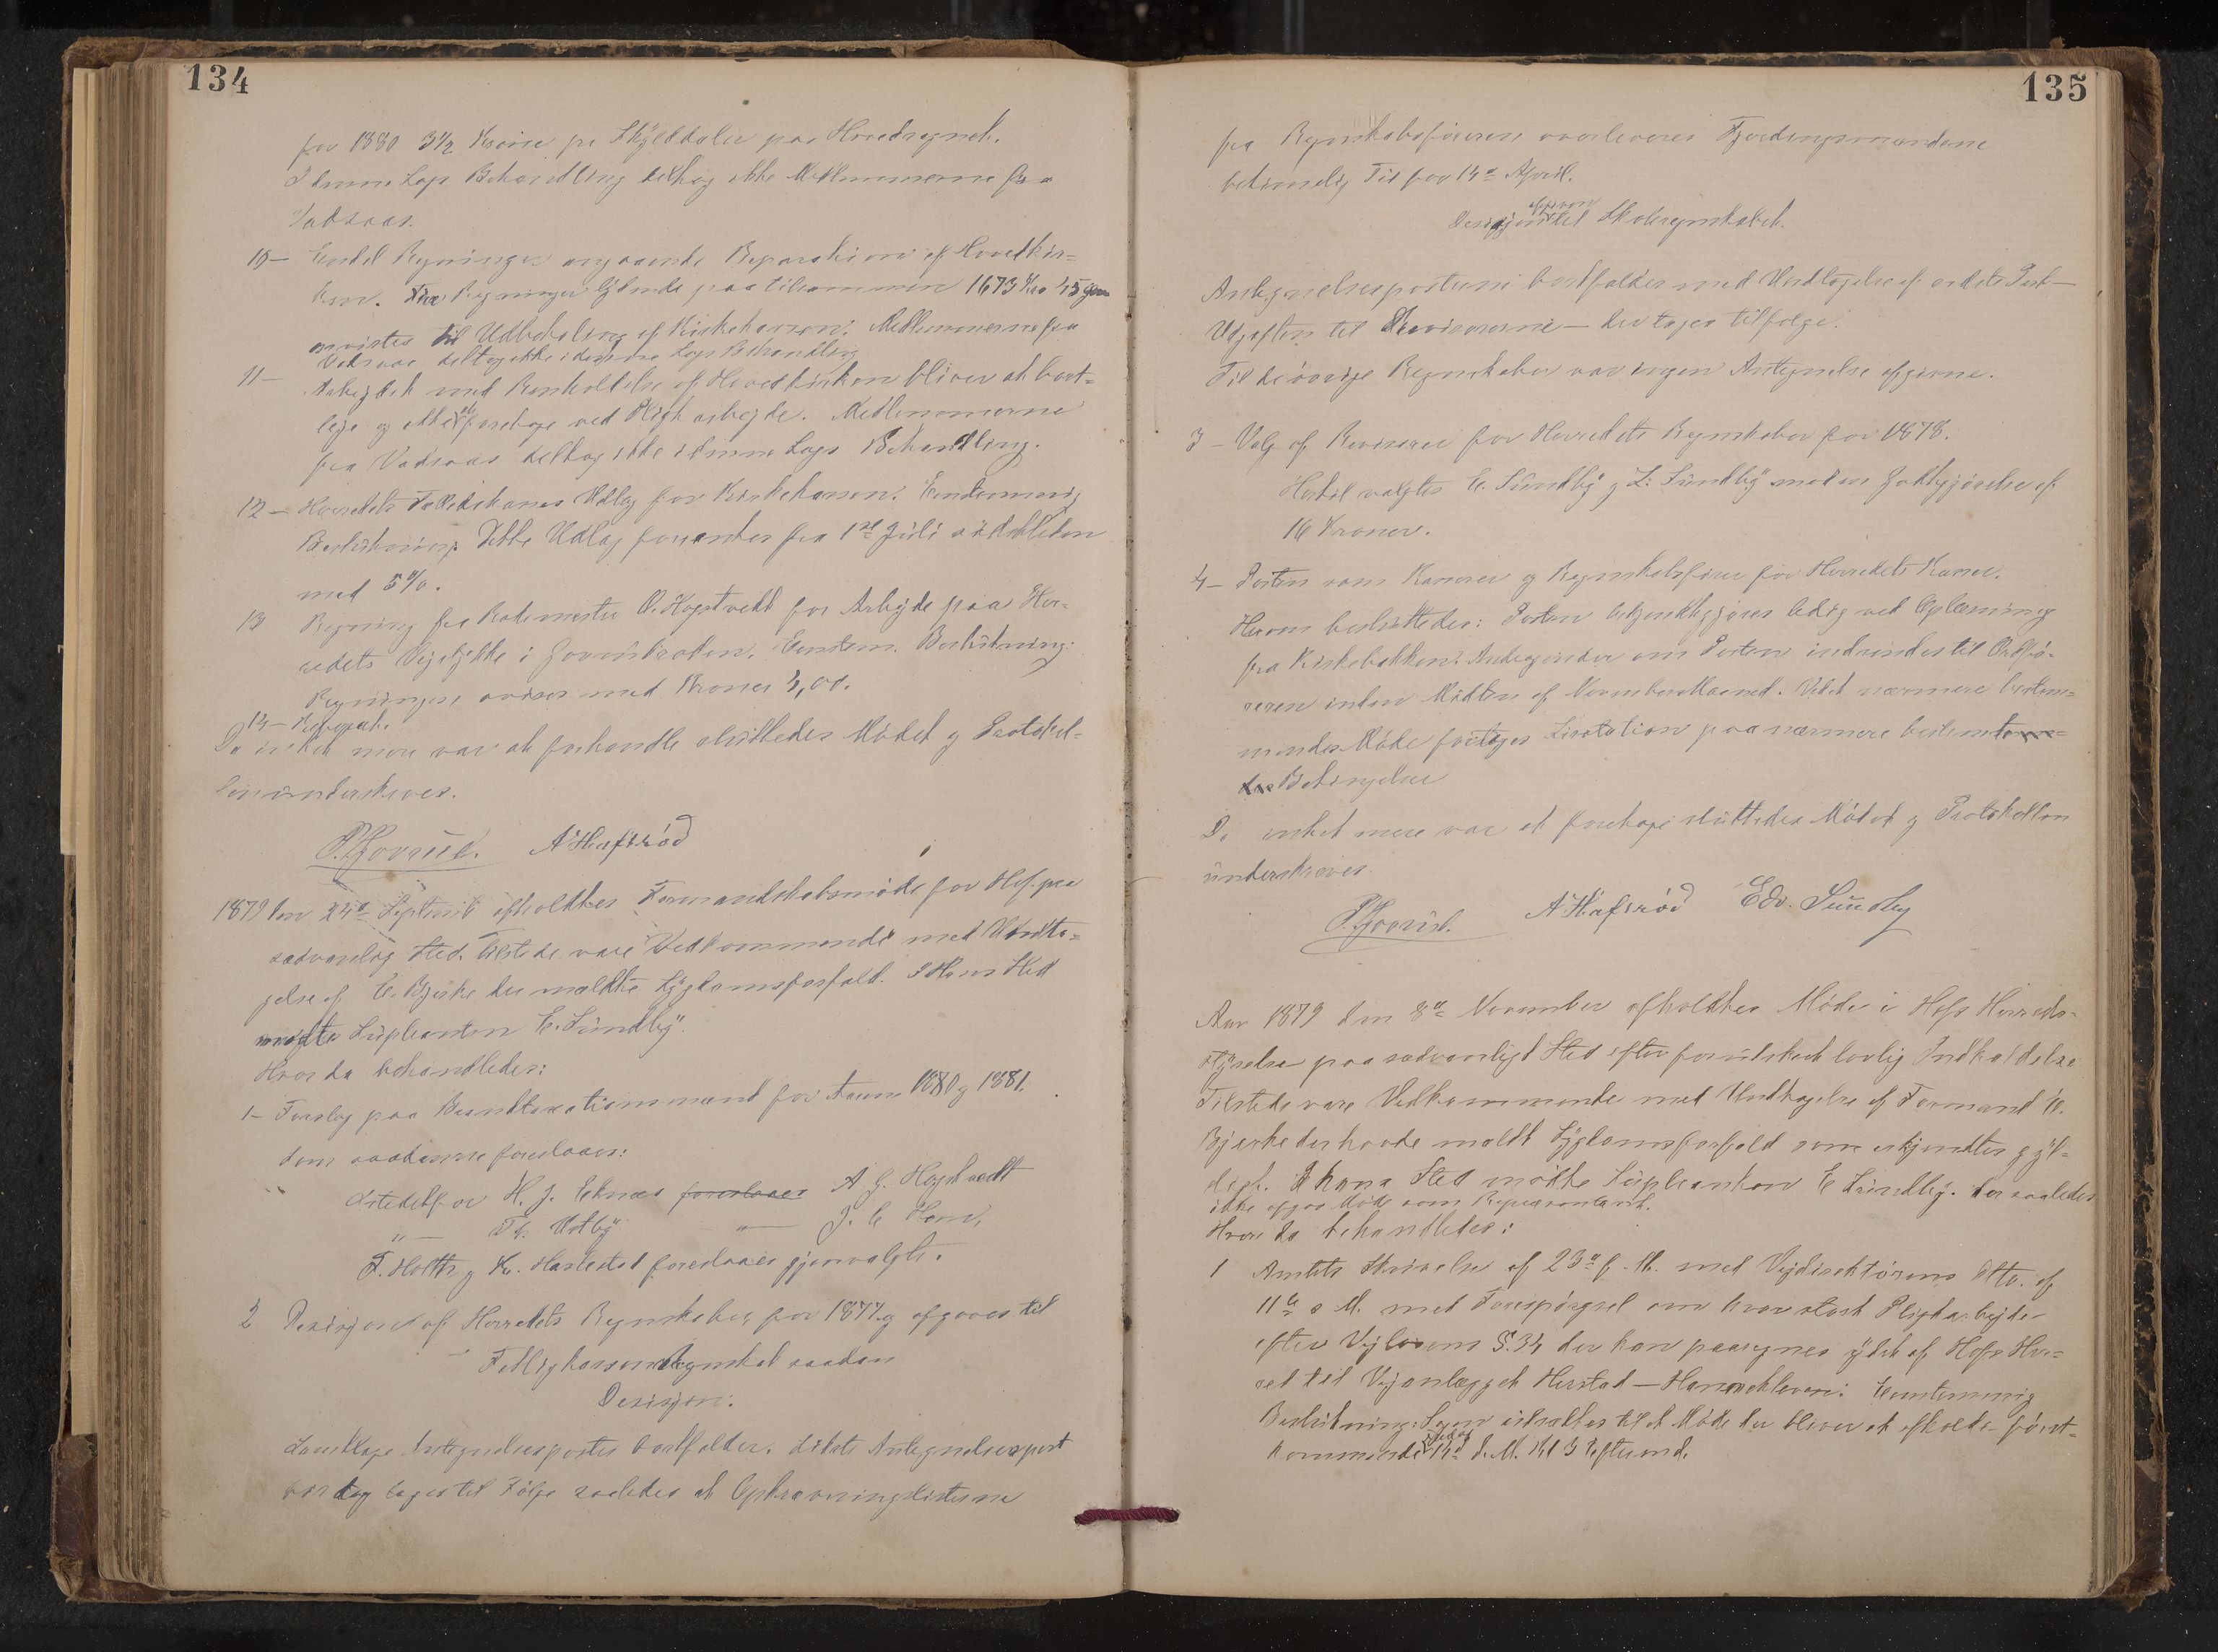 134
for 1880 3 1/2 Krone pr Skylddaler paa Hovedsognet.
I denne Sags Behandling deltog ikke Medlemmerne fra
Vadsaas.
10 — Endel Regninger angaaende Reparation af Hovedkir-
ken. Regninger lydende paa tilsammen 1673 Kro 45 Øre
anvistes til Udbetaling af Kirkekassen. Medlemmerne fra
Vadsaas deltog ikke i denne Sags Behandling
11 — Arbejdet med Renholdelse af Hovedkirken bliver at bort-
leje og ikke at foretage ved Pligtarbejde. Medlemmerne
fra Vadsaas deltog ikke i denne Sags Behandling.
12 — Herredets Udlæg for Kirkekassen. Eenstemmig
Beslutning: Dette Udlæg forrentes fra 1ste Juli sidstleden
med 5%.
13 Regning fra Rodemester O. Hogstvedt for Arbejde paa Her-
redets Vejstykke i Eenstem. Beslutning:
Regningen anvises med Kroner 4,00.
14 —
Da intet mere var at forhandle sluttedes Mødet og Protokol-
len underskreves.
A Hafsrød
1879 den 24de Septemb afholdtes Formandskabsmøde for Hof paa
sædvanlig Sted. Tilstede vare Vedkommende med Undta-
gelse af E. Bjerke der meldte Sygdomsforfald. I Hans Sted
mødte Supleanten E. Sundby.
Hvor da behandledes:
1 — Forslag paa Brandtaxationsmænd for Aarene 1880 og 1881.
Som saadanne foreslaaes:
Istedetfor H. J. Eknæs foreslaaes A G. Hogstvedt
" — Th. Holby " — J. C. Horn,
F. Holth og K. Harlestad foreslaaes gjenvalgte.
2 Desisjon af Herredets Regnskaber for 1877 og afgaves til
Fattigkassens Regnskab saadan
Desisjon:
Samtlige Antegnelsesposter bortfalder. Sidste Antegnelsespost
bør dog tages til Følge saaledes at Opkrævningslisterne
135
fra Regnskabsføreren overleveres Fjerdingsmændene
betimelig Tid før 14de April.
Desisjon afgiven til Skoleregnskabet.
Antegnelsesposterne bortfalder med Undtagelse af sidste Post —
Udgiften til Revisorerne — der tages tilfølge.
Til de øvrige Regnskaber var ingen Antegnelse afgivne.
3 — Valg af Revisorer for Herredets Regnskaber for 1878.
Hertil valgtes E. Sundby og L. Sundby mod en Godtgjørelse af
16 Kroner.
4 — Posten som Kasserer og Regnskabsfører for Herredets Kasser.
Herom besluttedes: Posten bekjendtgjøres ledig ved Oplæsning
fra Kirkebakken. Andragender om Posten indsendes til Ordfø-
reren inden Midten af November Maaned. Ved et nærmere bestem-
mendes Møde foretages Lisitation paa nærmere bestemte
Betingelser
Da intet mere var at foretage sluttedes Mødet og Protokollen
underskreves.
A Hafsrød Edv. Sundby
Aar 1879 den 8de November afholdtes Møde i Hofs Herreds-
styrelse paa sædvanligt Sted efter forudskeet lovlig Indkaldelse
Tilstede vare Vedkommende med Undtagelse af Formand E.
Bjerke der havde meldt Sygdomsforfald som erkjendtes gyl-
digt. I hans Sted mødte Supleanten E Sundby. der saaledes
ikke afgav Møde som Repræsentant.
Hvor da behandledes:
1 Amtets Skrivelse af 23de f. M. med Vejdirektørens dtto. af
11te s M. med Forespørgsel om hvor stort Pligtarbejde
efter Vejlovens §. 34 der kan paaregnes ydet af Hofs Her-
red til Vejanlægget Herstad — Hanekleven: Eenstemmig
Beslutning: Sagen udsættes til et Møde der bliver at afholde først-
kommende d. M. Kl 3 Efterm.